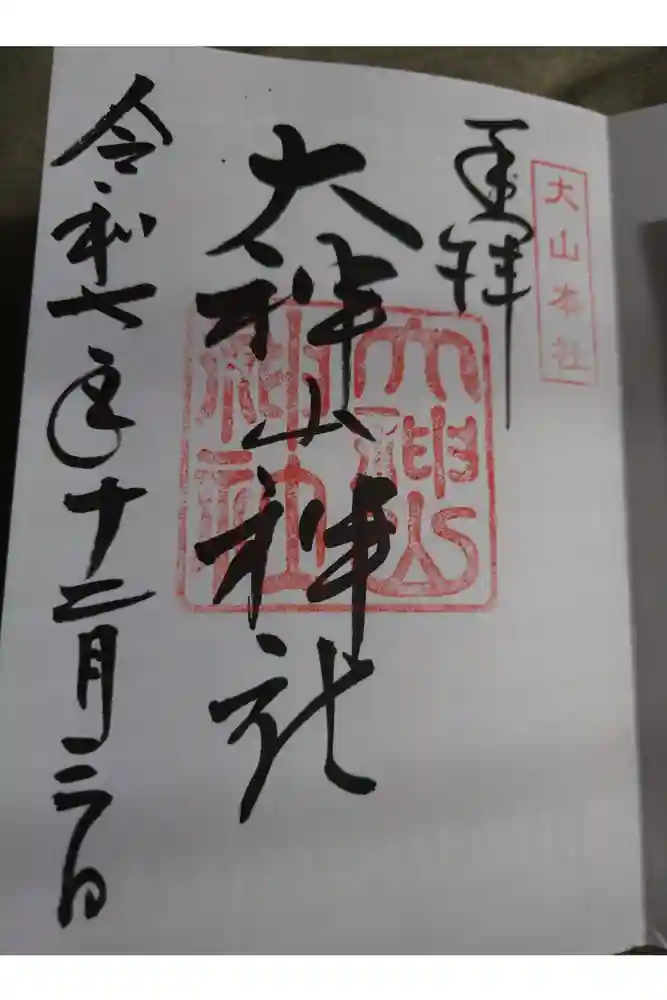 大山本社
奉拝
大神山神社
大神山
神社
令和七年十二月三日